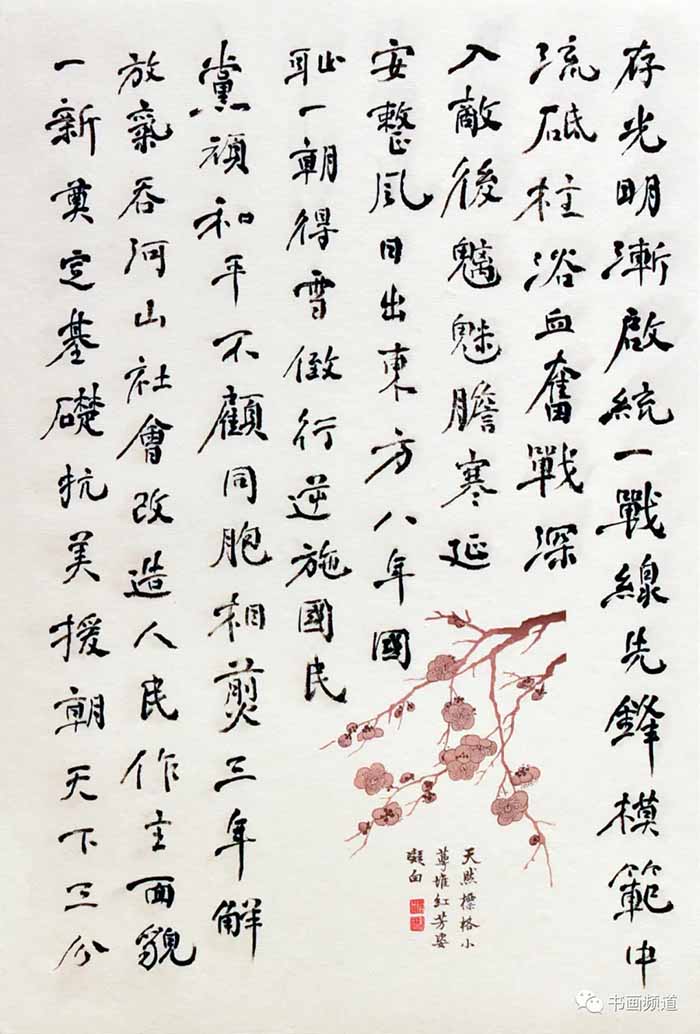 存光明漸啟統一戰線先鋒模範中
流砥柱浴血奮戰深
入敵後魑魅膽寒延
安整風日出東方八年國
耻一朝得雪倒行逆施國民
黨頑和平不顧同胞相煎三年解
放氣吞河山社會改造人民作主面貌
一新奠定基礎抗美援朝天下三分
天然標格小
萼堆紅芳姿
凝白
书画频道